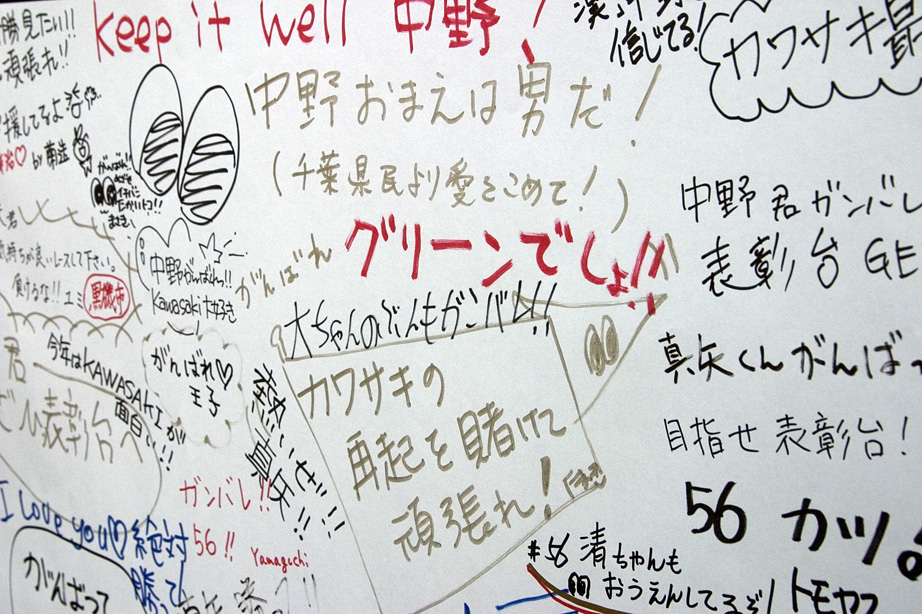 勝見たい!!
頑張れ!!
援してるよ
by 南造
keep it well 中野!
信じてる!
カワサキ最
中野おまえは男だ!
(千葉県民より愛をこめて!)
グリーンでしょ!!
がんばれ
中野がんばれっ!!
Kawasaki大好き
気持ちが良いレースして下さい。
負けるな!! ユミ
黒磯市
大ちゃんのぶんもガンバレ!!
中野君ガンバレ
表彰台GE
真矢くんがんばっ
目指せ表彰台!
56 カツ
カワサキの
再起を賭けて
頑張れ!
がんばれ♡
王子
今年はKAWASAKIが
面白い!!
君
表彰台へ
熱いぜ!!
真矢!!
ガンバレ!!
56!!
Yamaguchi
I love you♡
絶対
勝って
がんばって
#56 清ちゃんも
おうえんしてるぞ!
トモヤス